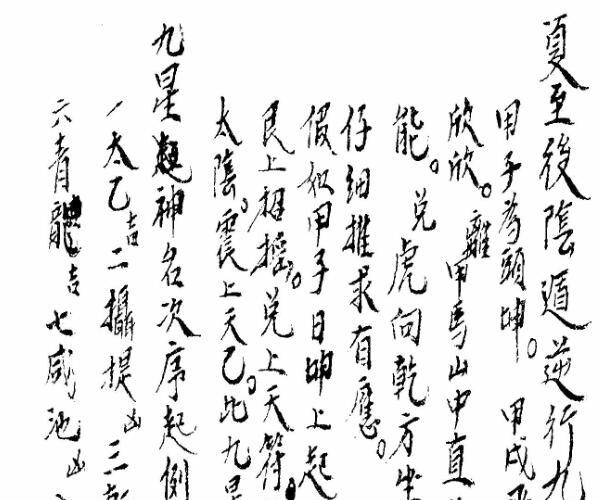 夏至後陰遁逆行九
甲子為頭坤。甲戌
欣欣。離甲馬山中直
能。兌虎向乾方坐
仔細推求有應。
假如甲子日坤上起
艮上招搖。兌上天符。
太陰。震上天乙。此九星
九星神名次序起例
一太乙吉二攝提凶三
六青龍吉七咸池凶